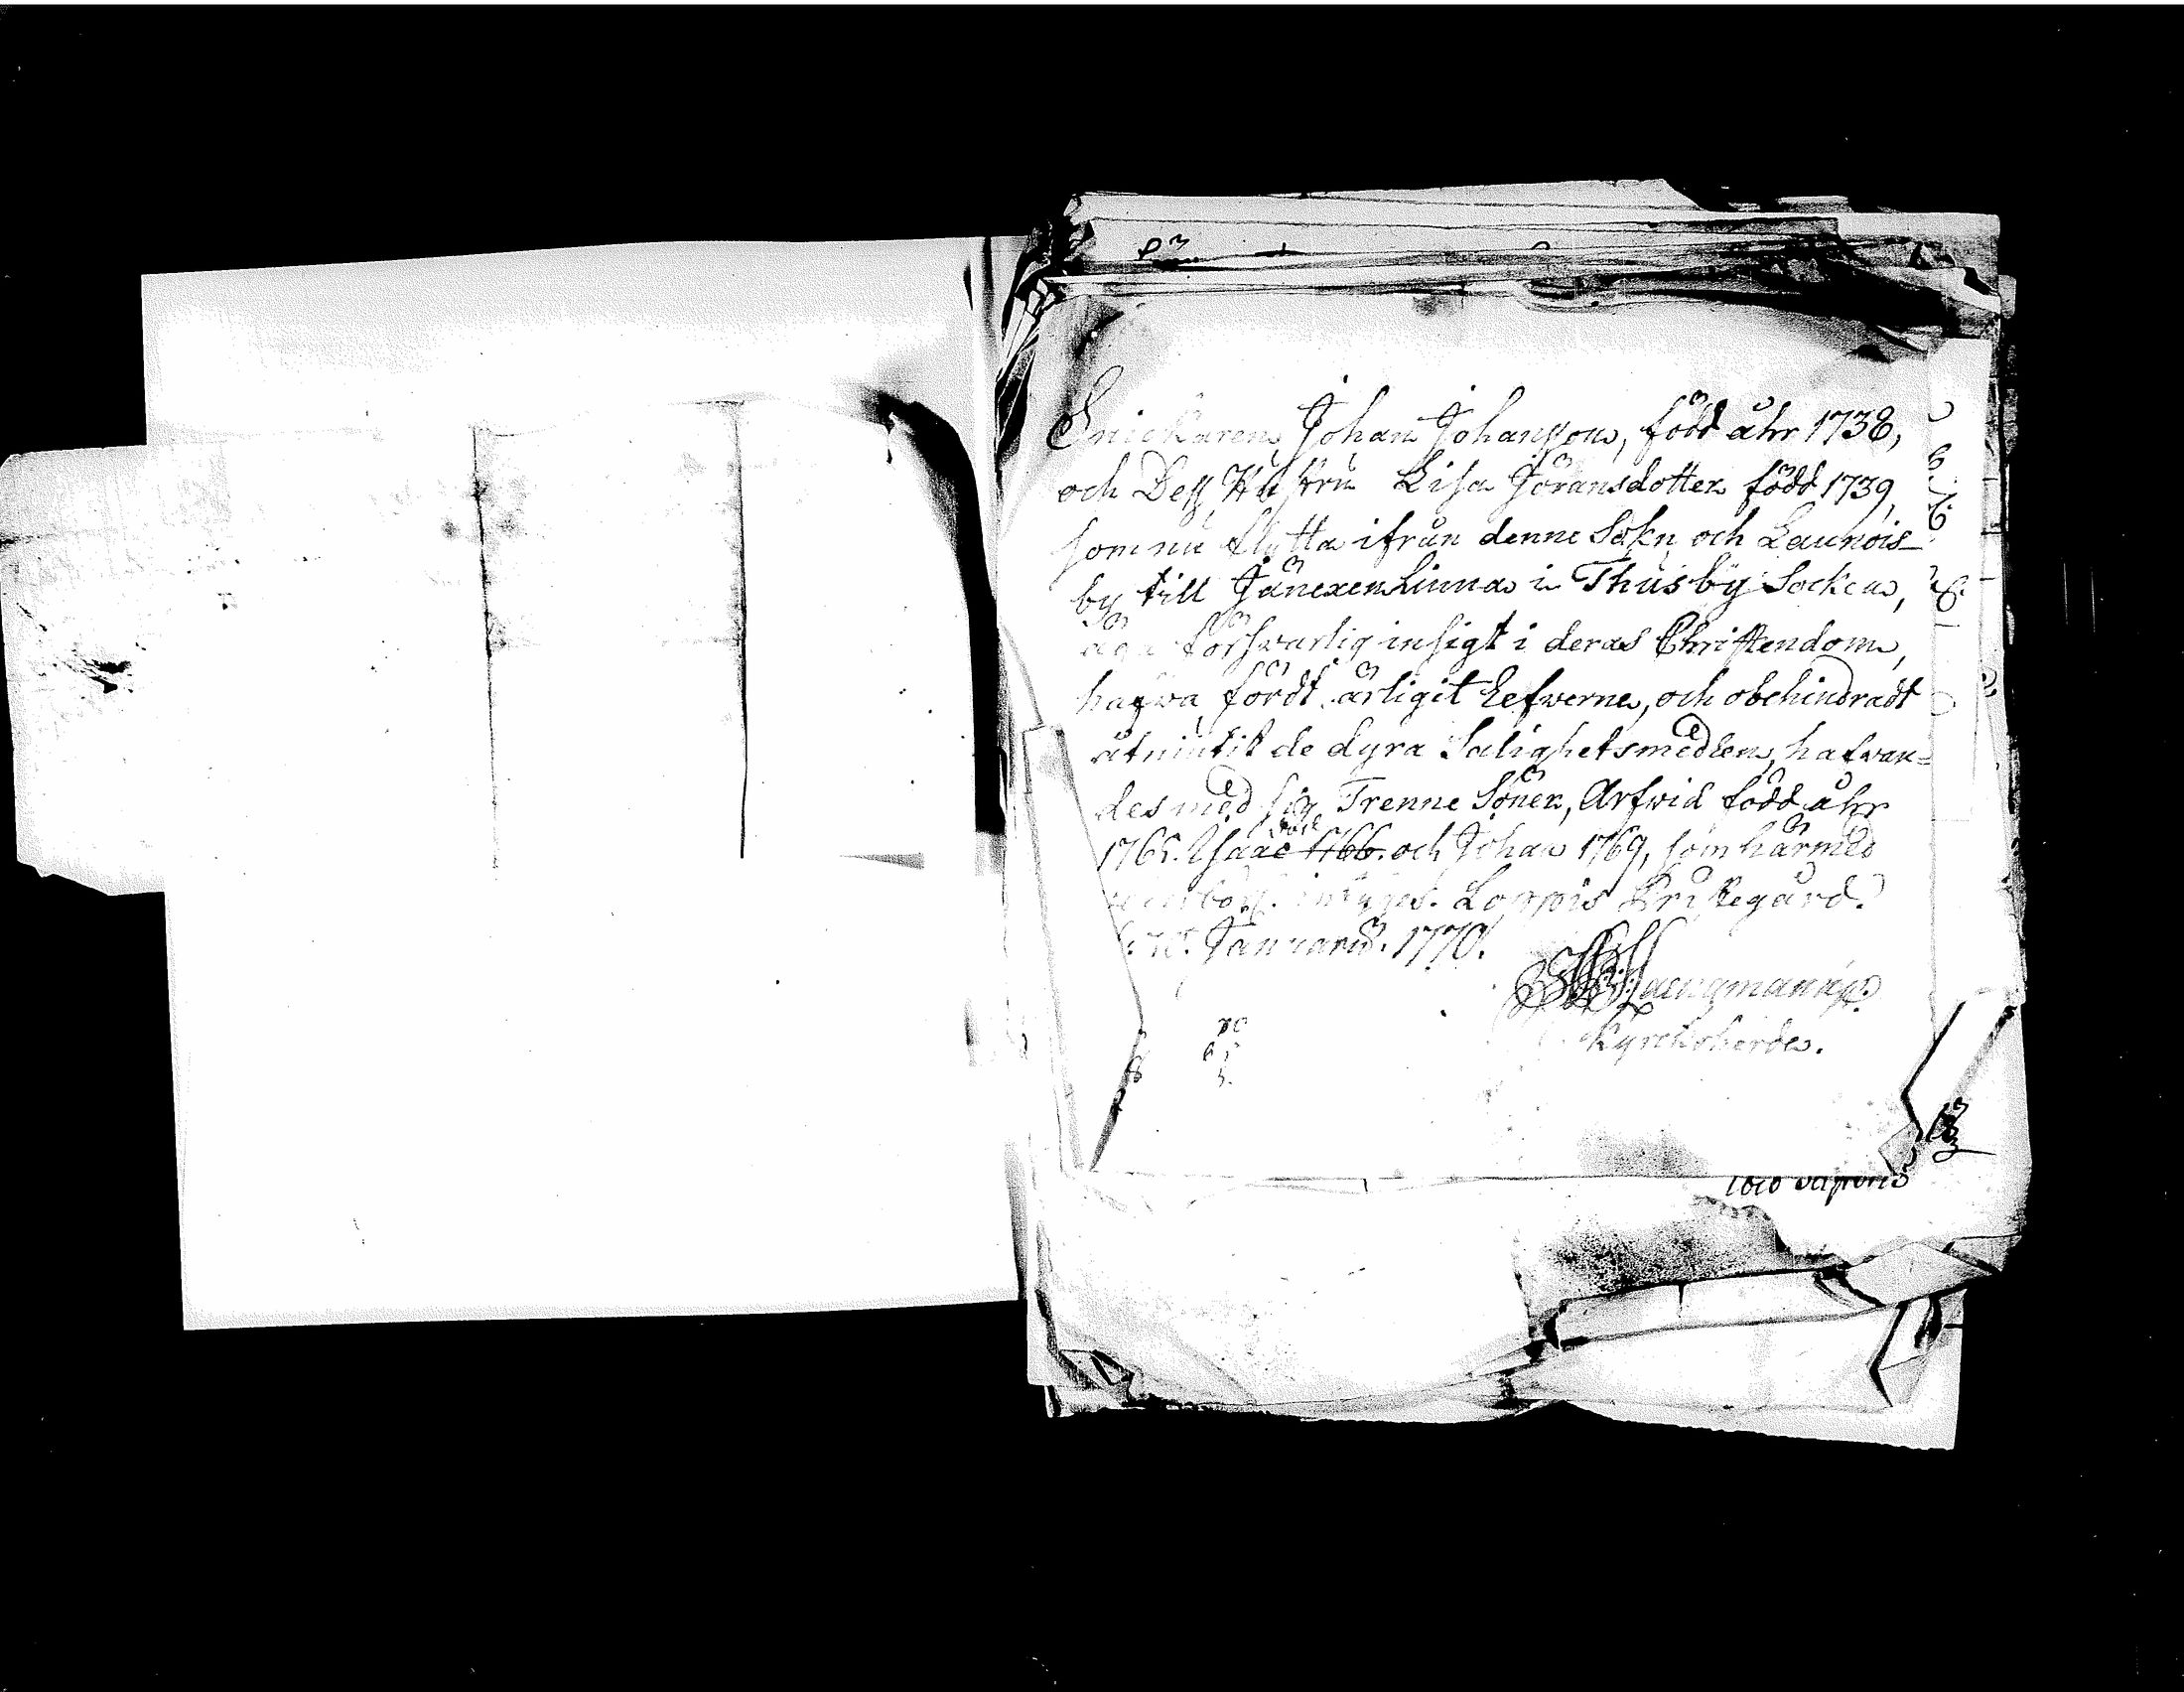 Snickaren, Johan Johansson, född åhr 1738,
och Dess Hustru Lisa Jöransdotter född 1739,
som nu flytta ifrån denne Sokn och Launois
by till Jänexen Linna i Thusby Socken,
äga försvarlig insigt i deras Christendom,
hafva fördt ärligit Lefwerne, och obehindradt
åtniutit de dyra Salighetsmedlen, hafvan=
des med sig Trenne Söner, Arfwid född åhr
1765. Isaac 1766. och Johan 1769, som härmed
intyges. Loppis Prästegård.
Januarii. 1770.
Kyrckoherde.
70
65
5.
loco sigilli